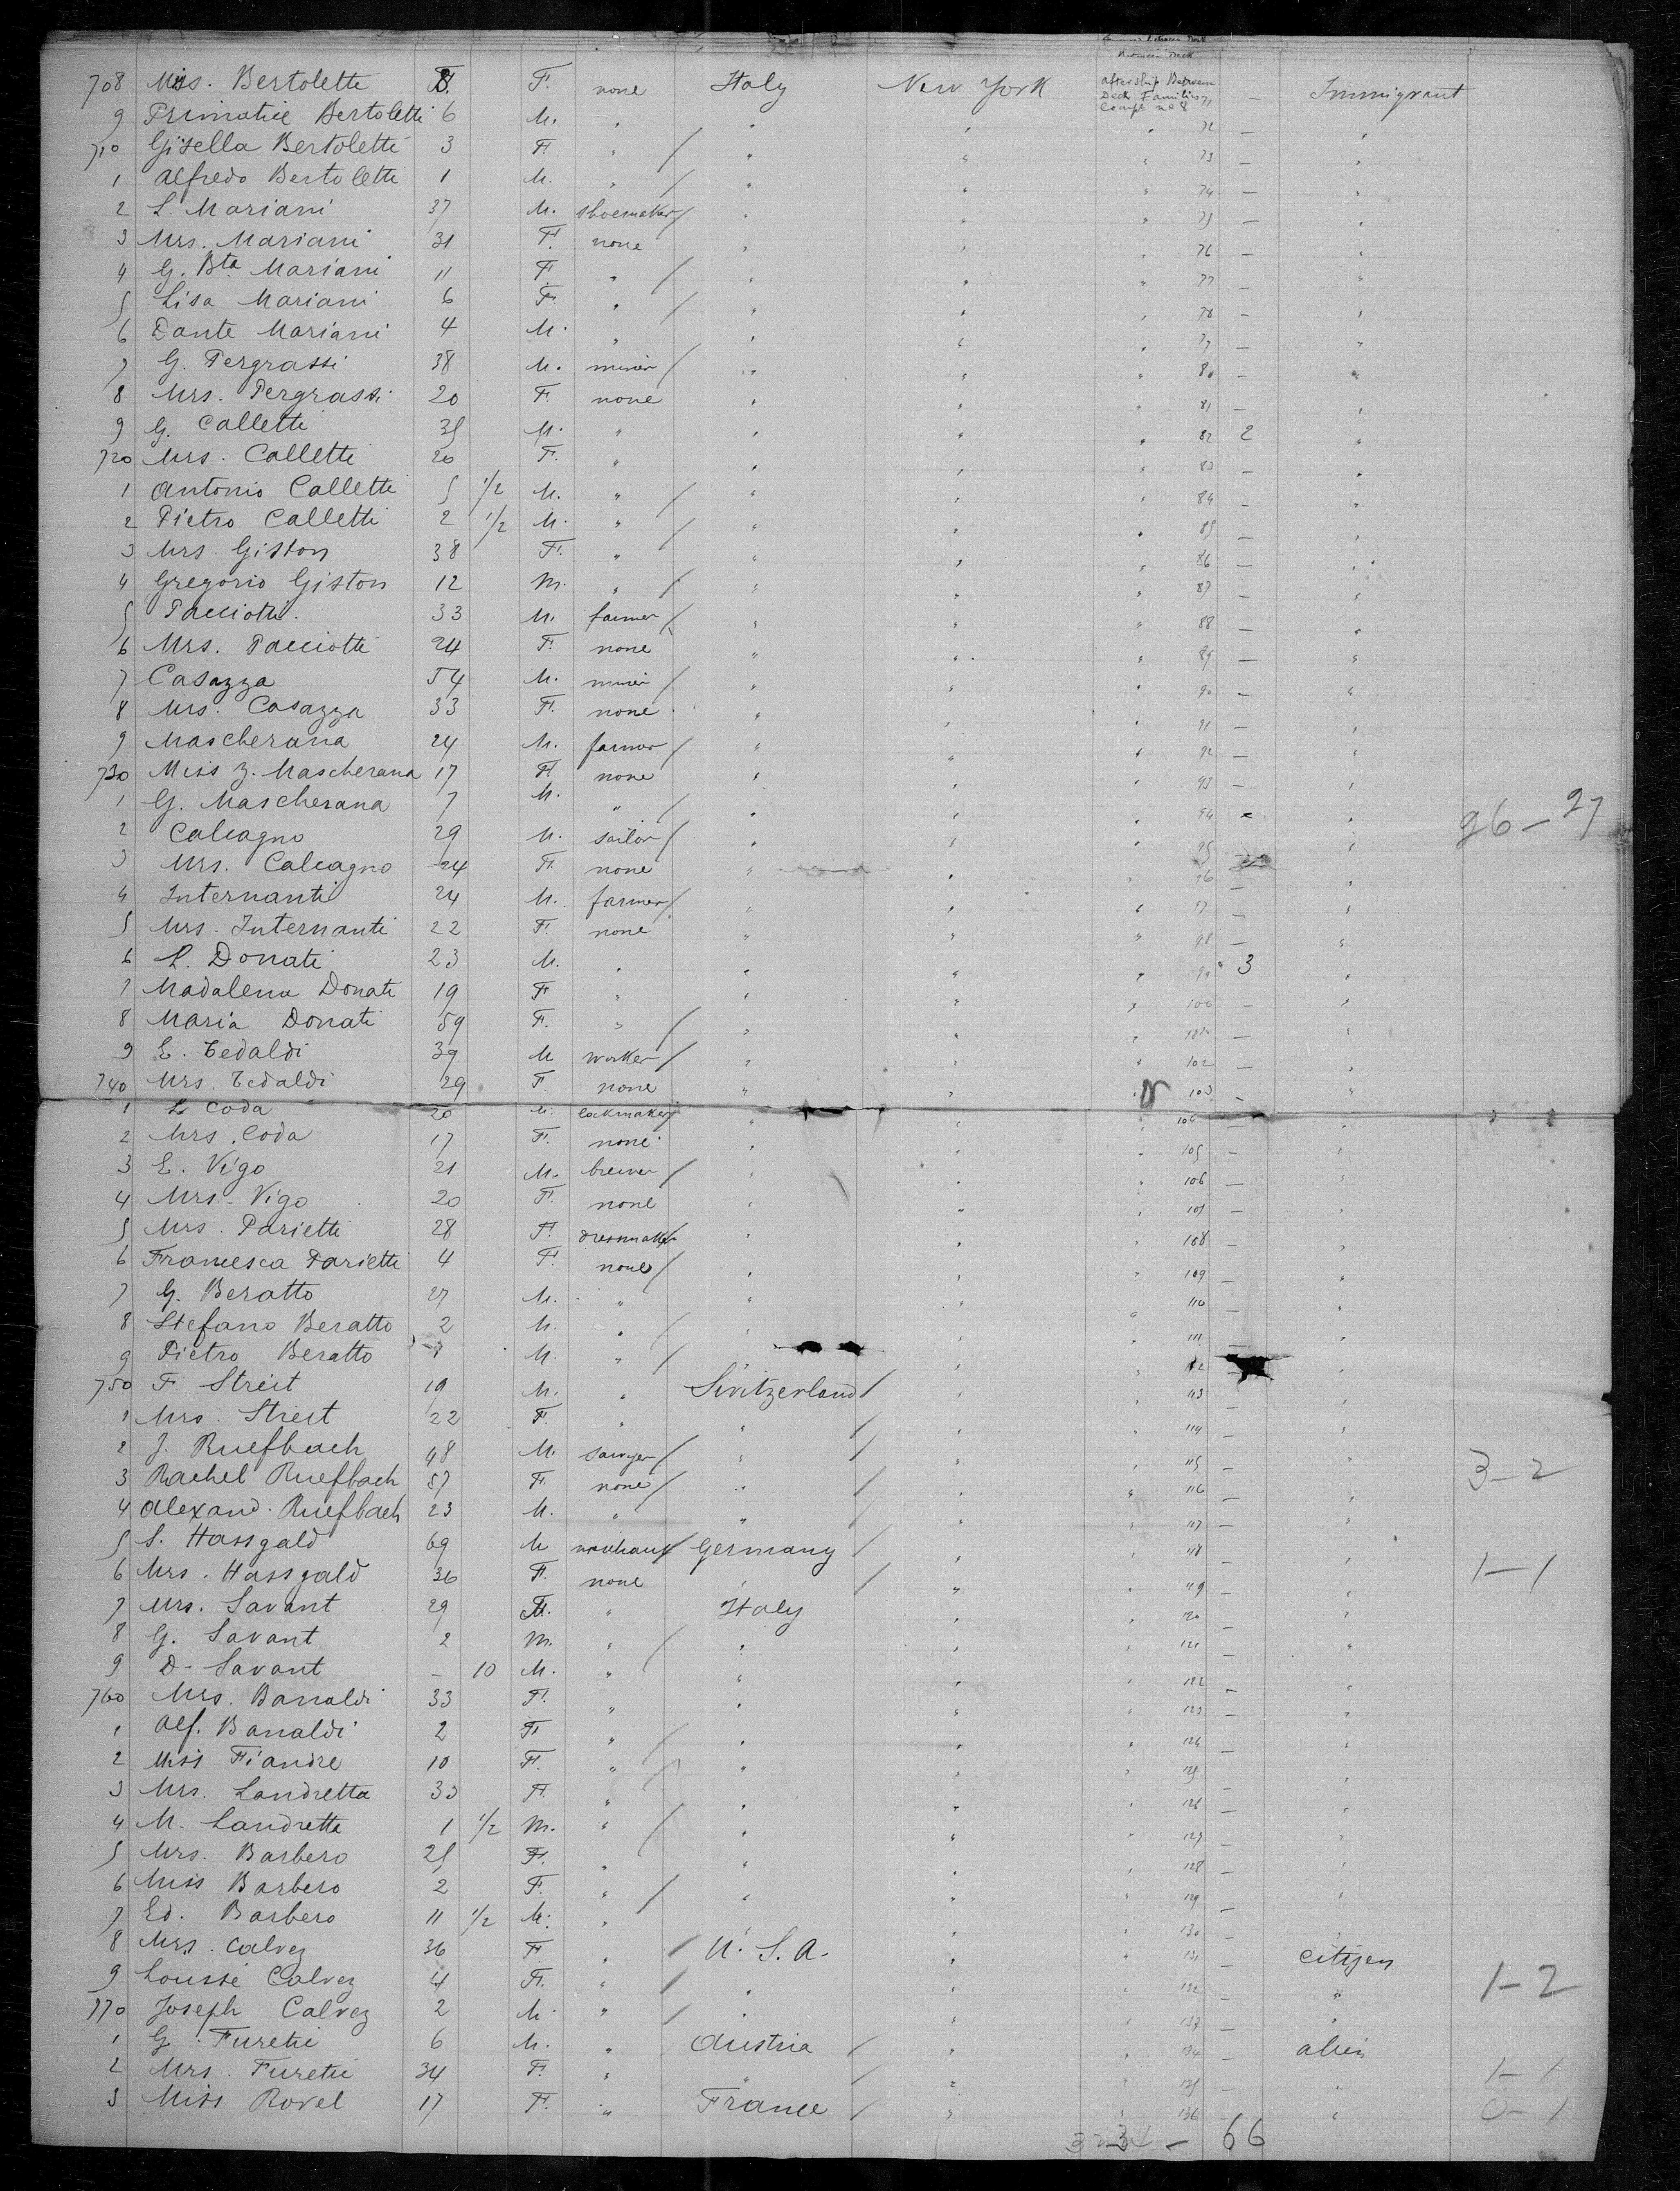 Between Deck
708 Miss. Bertoletti 8. F. none Italy New York aftership Between Deck Families Comp. no 8 71 — Immigrant
9 Primatice Bertoletti 6 M. " " " " 72 — "
710 Gisella Bertoletti 3 F. " / " " " 73 — "
1 Alfredo Bertoletti 1 M. " / " " " 74 — "
2 L. Mariani 37 M. shoemaker / " " " 75 — "
3 Mrs. Mariani 31 F. none " " " 76 — "
4 G. Bta Mariani 11 F " / " " " 77 — "
5 Lisa Mariani 6 F. " / " " " 78 — "
6 Dante Mariani 4 M. " " " " 79 — "
7 G. Pergrassi 38 M. miner / " " " 80 — "
8 Mrs. Pergrassi 20 F. none " " " 81 — "
9 G. Calletti 35 M. " " " " 82 2 "
720 Mrs. Calletti 20 F. " " " " 83 — "
1 Antonio Calletti 5 1/2 M. " / " " " 84 — "
2 Pietro Calletti 2 1/2 M. " / " " " 85 — "
3 Mrs. Giston 38 F. " " " " 86 — "
4 Gregorio Giston 12 M. " / " " " 87 — "
5 Pacciotti. 33 M. farmer / " " " 88 — "
6 Mrs. Pacciotti 24 F. none " " " 89 — "
7 Casazza 54 M. miner / " " " 90 — "
8 Mrs. Casazza 33 F. none " " " 91 — "
9 Mascherana 24 M. farmer / " " " 92 — "
730 Miss Z. Mascherana 17 F. none " " " 93 — "
1 G. Mascherana 7 M. " / " " " 94 — " 26 - 27
2 Calcagno 29 M. sailor / " " " 95 — "
3 Mrs. Calcagno 24 F. none " " " 96 — "
4 Internanti 24 M. farmer / " " " 97 — "
5 Mrs. Internanti 22 F. none " " " 98 — "
6 L. Donati 23 M. " " " " 99 3 "
7 Madalena Donati 19 F " " " " 100 — "
8 Maria Donati 59 F. " / " " " 101 — "
9 E. Tedaldi 39 M worker / " " " 102 — "
740 Mrs. Tedaldi 29 F. none " " " 103 — "
1 L Coda 20 M. lockmaker / " " " 104 — "
2 Mrs. Coda 17 F. none " " " 105 — "
3 E. Vigo 21 M. brewer / " " " 106 — "
4 Mrs. Vigo 20 F. none " " " 107 — "
5 Mrs. Parietti 28 F. dressmaker " " " 108 — "
6 Francesca Parietti 4 F. none / " " " 109 — "
7 G. Beratto 27 M. " " " " 110 — "
8 Stefano Beratto 2 M. " / " " " 111 — "
9 Pietro Beratto M. " / " " " 112 "
750 F Streit 19 M. " Switzerland / " " 113 — "
1 Mrs. Streit 22 F. " " / " " 114 — "
2 J. Ruefbach 48 M. sawyer / " / " " 115 — " 3-2
3 Rachel Ruefbach 57 F. none / " / " " 116 — "
4 Alexand. Ruefbach 23 M. " " / " " 117 — "
5 S. Hassgald 69 M Germany / " " 118 " 1-1
6 Mrs. Hassgald 36 F. none " / " " 119 — "
7 Mrs. Savant 29 F. " Italy " " 120 — "
8 G. Savant 2 M. " / " " " 121 — "
9 D. Savant — 10 M. " " " " 122 — "
760 Mrs. Banaldi 33 F. " " " " 123 — "
1 Alf. Banaldi 2 F " / " " " 124 — "
2 Miss Fiandre 10 F. " / " " " 125 — "
3 Mrs. Landretta 33 F. " " " " 126 — "
4 M. Landrette 1 1/2 M. " / " " " 127 — "
5 Mrs. Barbero 25 F. " " " " 128 — "
6 Miss Barbero 2 F. " / " " " 129 — "
7 Ed. Barbero 11 1/2 M. " " " " 130 — "
8 Mrs. Calvez 36 F " / U. S. A. " " 131 — citizen
9 Loussé Calvez 4 F. " / " " " 132 — " 1-2
770 Joseph Calvez 2 M " / " " " 133 — "
1 G. Furetti 6 M. " Austria / " " 134 — alien
2 Mrs. Furetti 34 F. " " / " " 135 — " 1-1
3 Miss Rovel 17 F. " France / " " 136 — " 0-1
— 66